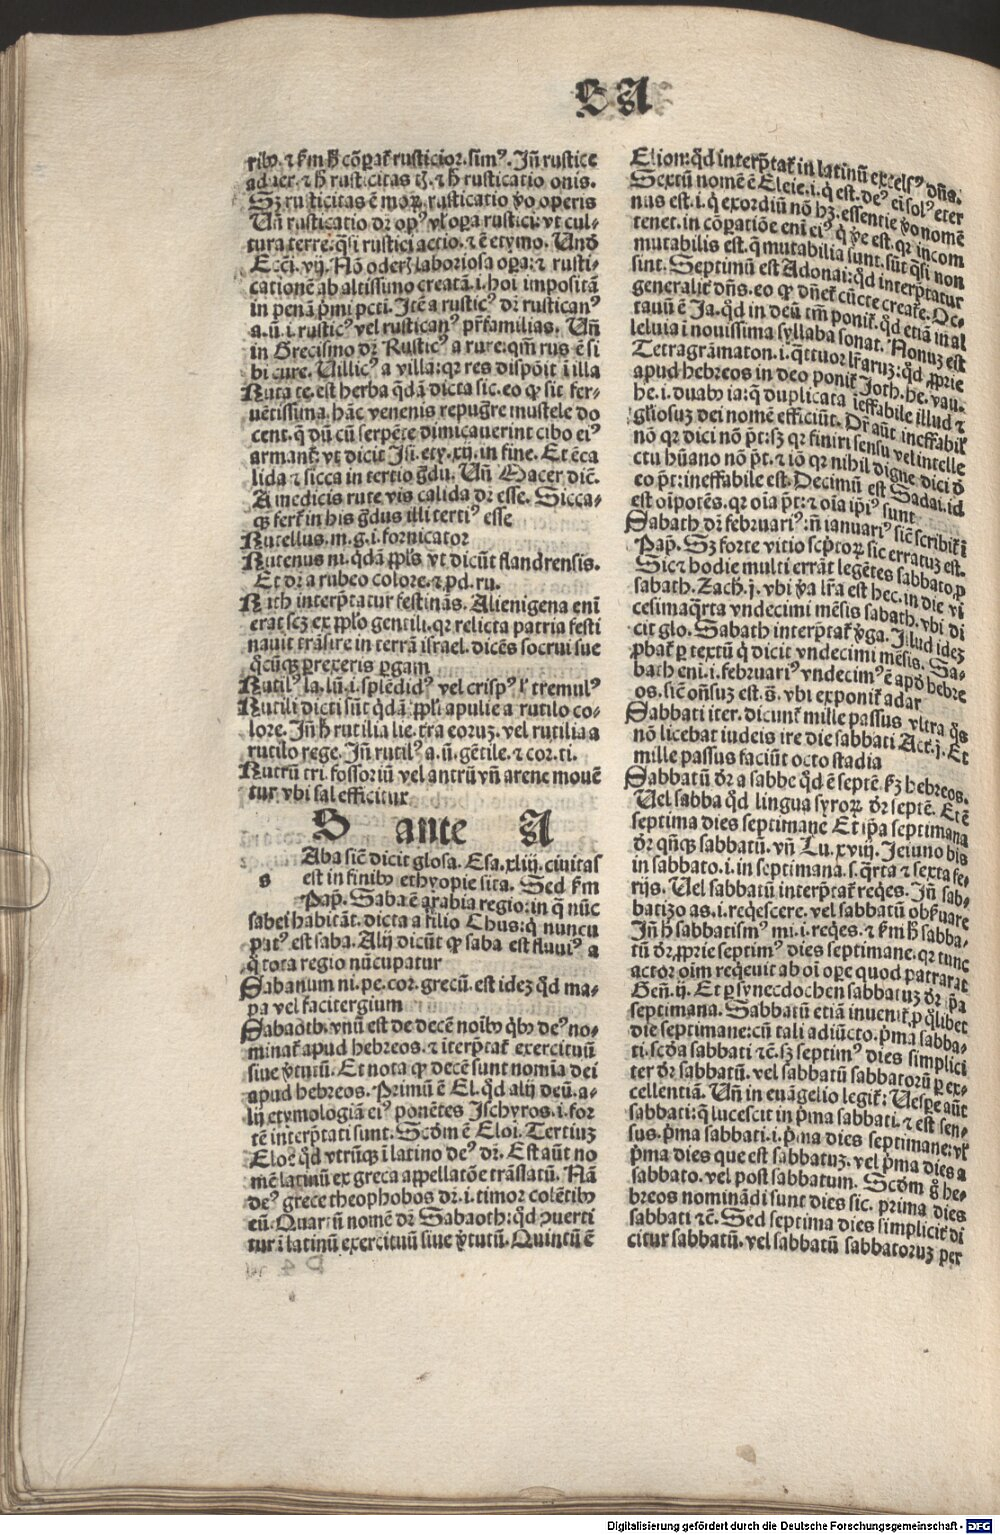 SA
ribꝫ. ⁊ ẜm ħ cōꝑaꞇ̃ rusticior. simꝰ. Jn̄ rustice
aduer. ⁊ ħ rusticitas tꝭ. ⁊ ħ rusticatio onis.
Sꝫ rusticitas ē moꝝ. rusticatio ꝟo operis
Un̄ rusticatio dr̄ opꝰ vl̓ oꝑa rustici: vt cul⸗
tura terre: q̄si rustici actio. ⁊ ē etymo. Unđ
Ecc̄i. vij. Nō oderꝭ laboriosa oꝑa: ⁊ rusti⸗
cationē ab altissimo creatā. i. hoi impositā
in penā p̄mi pcti. Itē a rusticꝰ dr̄ rusticanꝰ
a. ū. i. rusticꝰ vel rusticanꝰ pr̄familias. Un̄
in Grecismo dr̄ Rusticꝰ a rure: qm̄ rus ē si
bi cure. Uillicꝰ a villa: qr res dispōit ī illa
Ruta te. est herba q̄dā dicta sic. eo ꝙ sit fer⸗
uētissima. hāc venenis repugr̄e mustele do
cent. q̄ dū cū serpēte dimicauerint cibo eiꝰ
armant̄: vt dicit Isi. ety. xij. in fine. Et ē ca
lida ⁊ sicca in tertio g̓du. Un̄ Macer diē.
A medicis rute vis calida dr̄ esse. Sicca⸗
qꝫ ferꞇ̃ in his g̓dus illi tertiꝰ esse
Rutellus. m. g. i. fornicator
Rutenus ni. q̄dā ppl̓s vt dicūt flandrensis.
Et dr̄ a rubeo colore. ⁊ ꝓd. ru.
Ruth interp̄tatur festinās. Alienigena eni
erat scꝫ ex ppl̓o gentili. qr relicta patria festi
nauit trāsire in terrā israel. dicēs socrui sue
q̊cūqꝫ ꝑrexeris ꝑgam
Rutilꝰ la. lū. i. splēdidꝰ vel crispꝰ l̓ tremulꝰ
Rutili dicti sūt q̄dā ppl̓i apulie a rutilo co⸗
lore. Jn̄ ħ rutilia lie. tr̄a eoruꝫ. vel rutilia a
rutilo rege. Jn̄ rutilꝰ a. ū. gētile. ⁊ cor. ti.
Rutrū tri. fossoriū vel antrū vn̄ arene mouē
tur vbi sal efficitur
S ante A
s
Aba siē dicit glosa. Esa. xliij. ciuitas
est in finibꝫ ethyopie sita. Sed ẜm
Pap̄. Saba ē arabia regio: in q̄ nūc
sabei habitāt. dicta a filio Chus: q̄ nuncu
patꝰ est saba. Alij dicūt ꝙ saba est fluuiꝰ a
q̊ tota regio nūcupatur
Sabanum ni. pe. cor. grecū. est ideꝫ qd̓ ma⸗
pa vel facitergium
Sabaoth. vnū est de decē noībꝫ q̊bꝫ deꝰ no⸗
minaꞇ̃ apud hebreos. ⁊ īterp̄taꞇ̃ exercituū
siue ꝟtutū. Et nota ꝙ decē sunt nomīa dei
apud hebreos. Primū ē El. qd̓ alij deū. a⸗
lij etymologiā eiꝰ ponētes Ischyros. i. for
tē interp̄tati sunt. Scđm ē Eloi. Tertiuꝫ
Eloe qd̓ vtrūqꝫ ī latino deꝰ dr̄. Est aūt no
mē latinū ex greca appellatōe trāslatū. Nā
deꝰ grece theophobos dr̄. i. timor colētibꝫ
eū. Quartū nomē dr̄ Sabaoth: qd̓ ꝯuerti
tur ī latinū exercituū siue ꝟtutū. Quintū ē
Elion: qd̓ interp̄taꞇ̃ in latinū excelsꝰ dn̄s.
Sextū nomē ē Eleie. i. q̄ est. deꝰ em̄ solꝰ eter
nus est. i. q̄ exordiū nō hꝫ. essentie ꝟo nomē
tenet. in cōꝑatiōe eni eiꝰ q̄ ꝟe est. qr incom
mutabilis est. q̄ mutabilia sunt. sūt q̄si non
sint. Septimū est Adonai: qd̓ interp̄tatur
generaliꞇ̃ dn̄s. eo ꝙ dn̄eꞇ̃ cūcte creaꞇ̃e. Oc⸗
tauū ē Ja. qd̓ in deū tm̄ poniꞇ̃. qd̓ etiā in al
leluia ī nouissima syllaba sonat. Nonuꝫ est
Tetragrāmaton. i. q̄ttuor lr̄aruꝫ: qd̓ ꝓprie
apud hebreos in deo poniꞇ̃ Joth. he. vau.
he. i. duabꝫ ia: q̄ duplicata īeffabile illud ⁊
gl̓iosuꝫ dei nomē efficiūt. Dr̄ aūt ineffabiꝉ
nō qr dici nō p̄t: sꝫ qr finiri sensu vel intelle
ctu hūano nō p̄t. ⁊ iō qr nihil digne dici đ
eo p̄t: ineffabile est. Decimū est Sadai. id
est oīpotēs. qr oīa p̄t: ⁊ oīa ip̄iꝰ sunt
Sabath dr̄ februariꝰ: n̄ ianuariꝰ siē scribiꞇ̃ ī
Pap̄. Sꝫ forte vitio scp̄toꝝ sic erratuꝫ est.
Sic ⁊ hodie multi errāt legētes sabbato, ꝓ
sabath. Zach. j. vbi ꝟa lr̄a est hec. in die vi
cesimaq̄rta vndecimi mēsis sabath. vbi di
cit glo. Sabath interp̄taꞇ̃ ꝟga. Illud ideꝫ
ꝓbaꞇ̃ ꝑ textū q̄ dicit vndecimi mēsis. Sa⸗
bath eni. i. februariꝰ vndecimꝰ ē apđ hebre
os. siē on̄suꝫ est. s̄. vbi exponiꞇ̃ adar
Sabbati iter. dicunꞇ̃ mille passus vltra q̊s
nō licebat iudeis ire die sabbati Act. j. Et
mille passus faciūt octo stadia
Sabbatū dr̄ a sabbe qd̓ ē septē ẜꝫ hebreos.
Uel sabba qd̓ lingua syroꝝ dr̄ septē. Et ē
septima dies septimane Et ip̄a septimana
dr̄ qn̄qꝫ sabbatū. vn̄ Lu. xviij. Jeiuno bis
in sabbato. i. in septimana. s. q̄rta ⁊ sexta fe
rijs. Uel sabbatū interp̄taꞇ̃ req̄es. Jn̄ sab⸗
batizo as. i. req̄escere. vel sabbatū obẜuare
Jn̄ ħ sabbatismꝰ mi. i. req̄es. ⁊ ẜm ħ sabba⸗
tū dr̄ ꝓprie septimꝰ dies septimane. qr tunc
actor oīm req̄euit ab oī oꝑe quod patrarat
Gen̄. ij. Et ꝑ synecdochen sabbatuꝫ dr̄ ip̄a
septimana. Sabbatū etiā inueniꞇ̃ ꝓ q̊libet
die septimane: cū tali adiūcto. p̄ma sabba⸗
ti. scđa sabbati ⁊c̄. sꝫ septimꝰ dies simplici
ter dr̄ sabbatū. vel sabbatū sabbatorū ꝑ ex⸗
cellentiā. Un̄ in euāgelio legiꞇ̃: Uesꝑe aūt
sabbati: q̄ lucescit in p̄ma sabbati. ⁊ est sen⸗
sus. p̄ma sabbati. i. p̄ma dies septimane: vl̓
p̄ma dies que est sabbatuꝫ. vel p̄ma dies a
sabbato. vel post sabbatum. Scđm g̊ he⸗
breos nominādi sunt dies sic. prima dies
sabbati ⁊c̄. Sed septima dies simpliciꞇ̃ di
citur sabbatū. vel sabbatū sabbatoruꝫ per
Digitalisierung gefördert durch die Deutsche Forschungsgemeinschaft - DFG